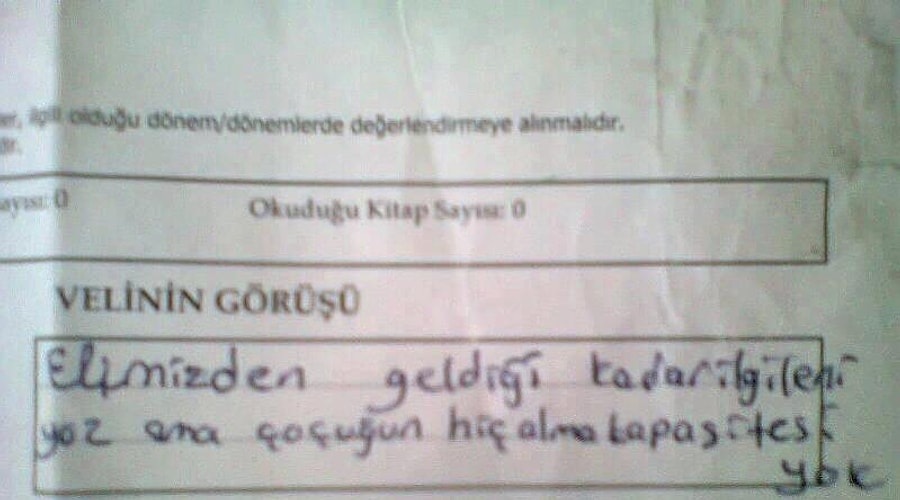 ilgili olduğu dönem/dönemlerde değerlendirmeye alınmalıdır.
Okuduğu Kitap Sayısı: 0
VELİNİN GÖRÜŞÜ
Elimizden geldiği kadar ilgileni
yoz ama çoçuğun hiç alma kapasitesi
yok